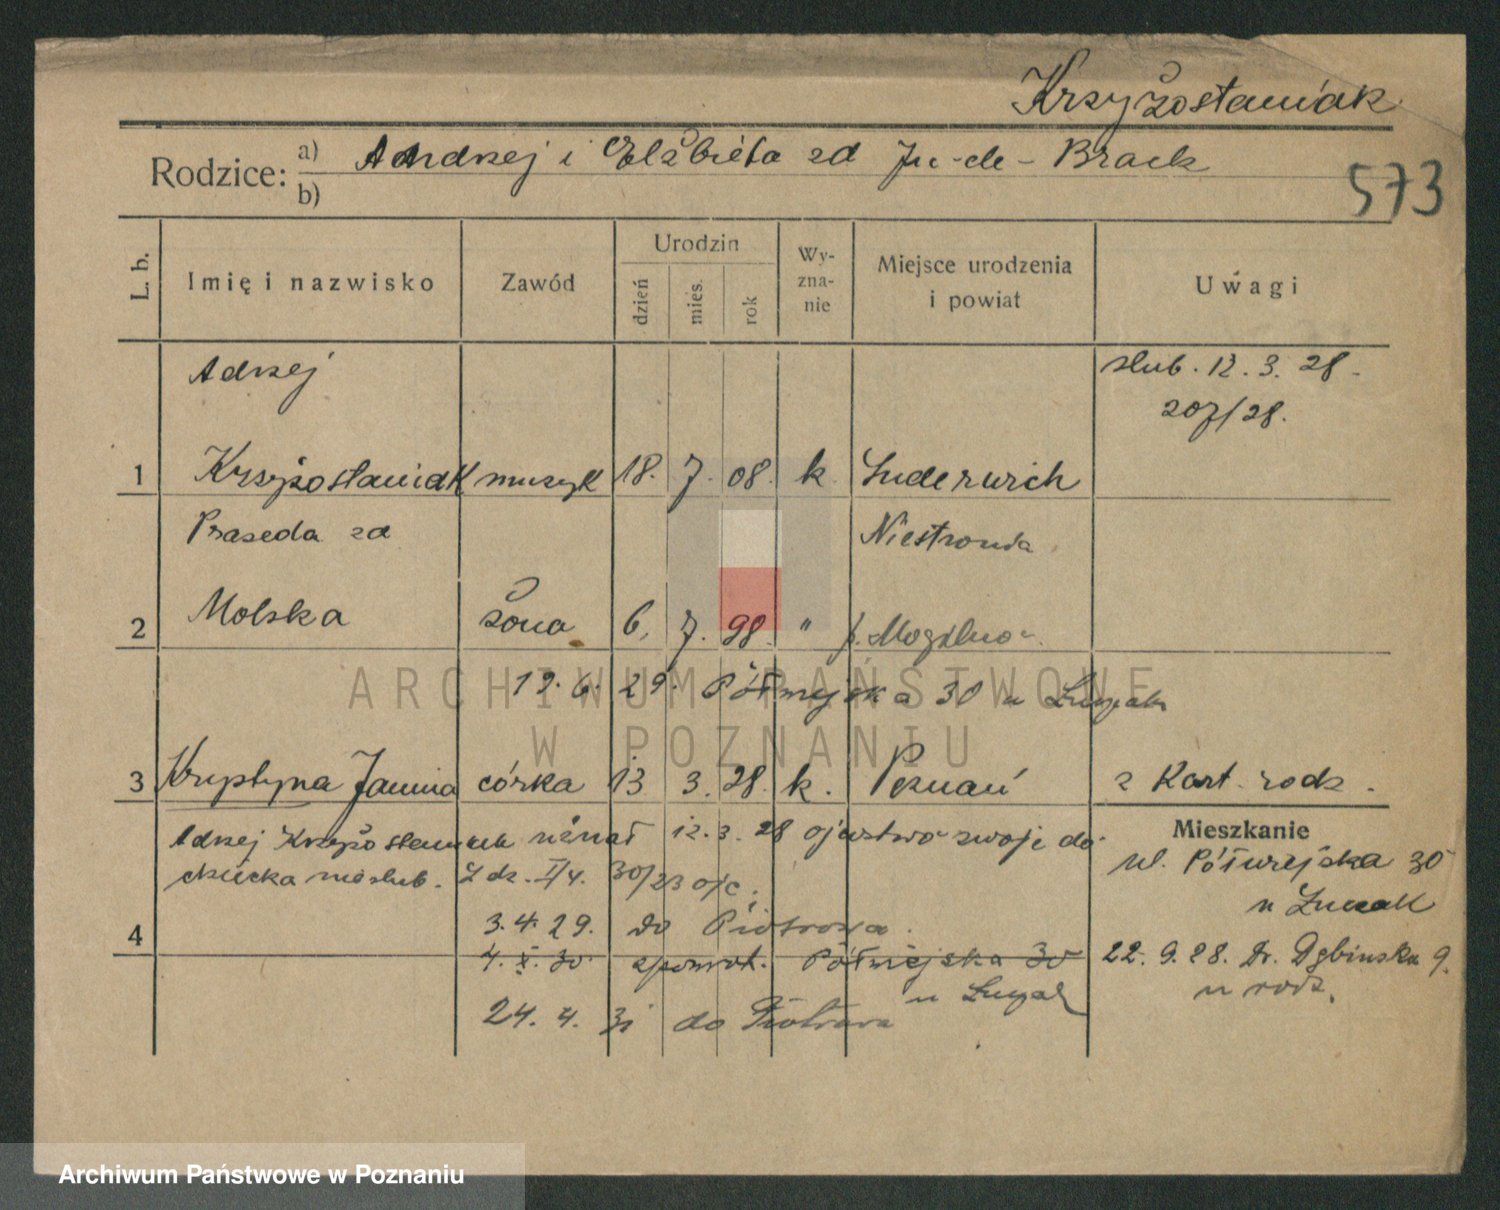 Krzyżostaniak
Rodzice: a) Andrzej i Elżbieta zd Brack
b)
573
L. b.
Imię i nazwisko
Zawód
Urodzin
dzień
mies.
rok
Wy-
zna-
nie
Miejsce urodzenia
i powiat
Uwagi
Adrzej
ślub. 12. 3. 28.
207/28.
1 Krzyżostaniak muzyk 18. 7. 08. k Suderwich
Praseda zd Niestronia
2 Molska żona 6. 7. 98. " p. Mogilno
19. 6. 29. Półwiejska 30 u
ARCHIWUM PAŃSTWOWE
W POZNANIU
3 Krystyna Janina córka 13 3. 28. k. Poznań z Kart. rodz.
Adrzej Krzyżostaniak uznał 12. 3. 28 ojcostwo swoje do
dziecka nieślub. 
Mieszkanie
ul. Półwiejska 30
u
4
3. 4. 29. do Piotrowa.
4. X. 30. spowrot. Półwiejska 30
u
22. 9. 28. Dr. Dębinska 9.
u rodz.
24. 4. 31 do Piotrowa
Archiwum Państwowe w Poznaniu